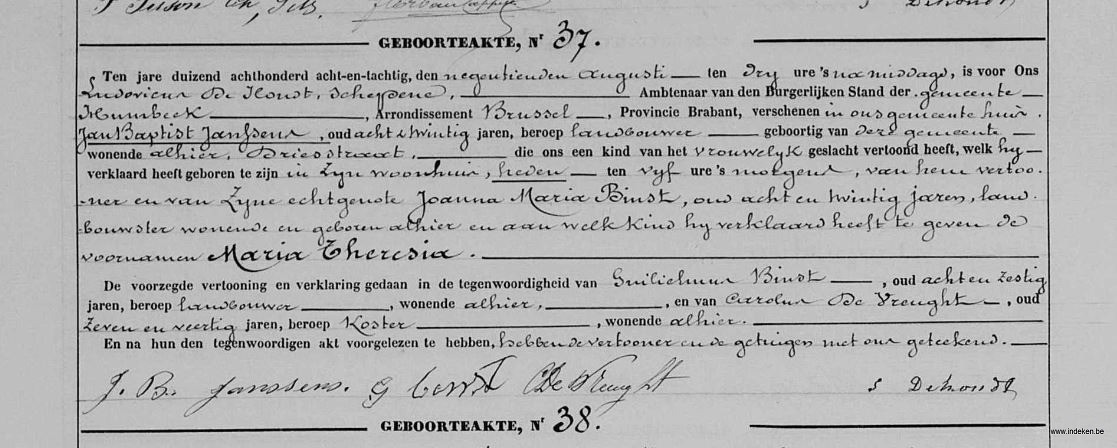 GEBOORTEAKTE, Nr 37.
Ten jare duizend achthonderd acht-en-tachtig, den negentienden Augusti — ten dry ure 's namiddags, is voor Ons
Ludovicus De Hondt, Schepene, — Ambtenaar van den Burgerlijken Stand der gemeente —
Humbeek —, Arrondissement Brussel —, Provincie Brabant, verschenen in ons gemeente huis,
Jan Baptist Janssens, oud acht & twintig jaren, beroep landbouwer — geboortig van deze gemeente —
wonende alhier, Driesstraat, — die ons een kind van het vrouwelyk geslacht vertoond heeft, welk hy —
verklaard heeft geboren te zijn in zyn woonhuis, heden — ten vyf ure 's morgens, van hem vertoo-
-ner en van zyne echtgenote Joanna Maria Binst, oud acht en twintig jaren, land-
-bouwster wonende en geboren alhier en aan welk kind hy verklaard heeft te geven de
voornamen Maria Theresia. —
De voorzegde vertooning en verklaring gedaan in de tegenwoordigheid van Guilielmus Binst —, oud acht en zestig
jaren, beroep landbouwer —, wonende alhier, —, en van Carolus De Vreught —, oud
zeven en veertig jaren, beroep Koster —, wonende alhier. —
En na hun den tegenwoordigen akt voorgelezen te hebben, hebben de vertooner en de getuigen met ons geteekend. —
J. B. Janssens. G Binst C De Vreught S Dehondt
GEBOORTEAKTE, Nr 38.
www.indeken.be